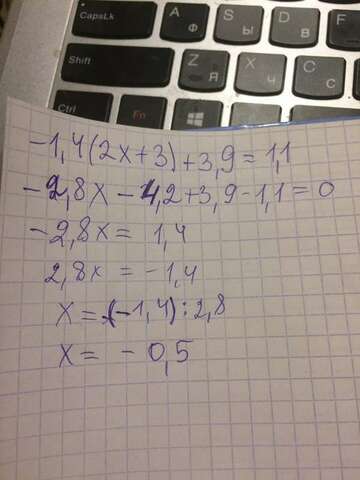 CapsLk A Ф S Ы D В F
Shift Z Я X Ч C С
Ctrl Fn
-1,4(2x+3)+3,9=1,1
-2,8x-4,2+3,9-1,1=0
-2,8x= 1,4
2,8x = -1,4
x=(-1,4):2,8
x= -0,5